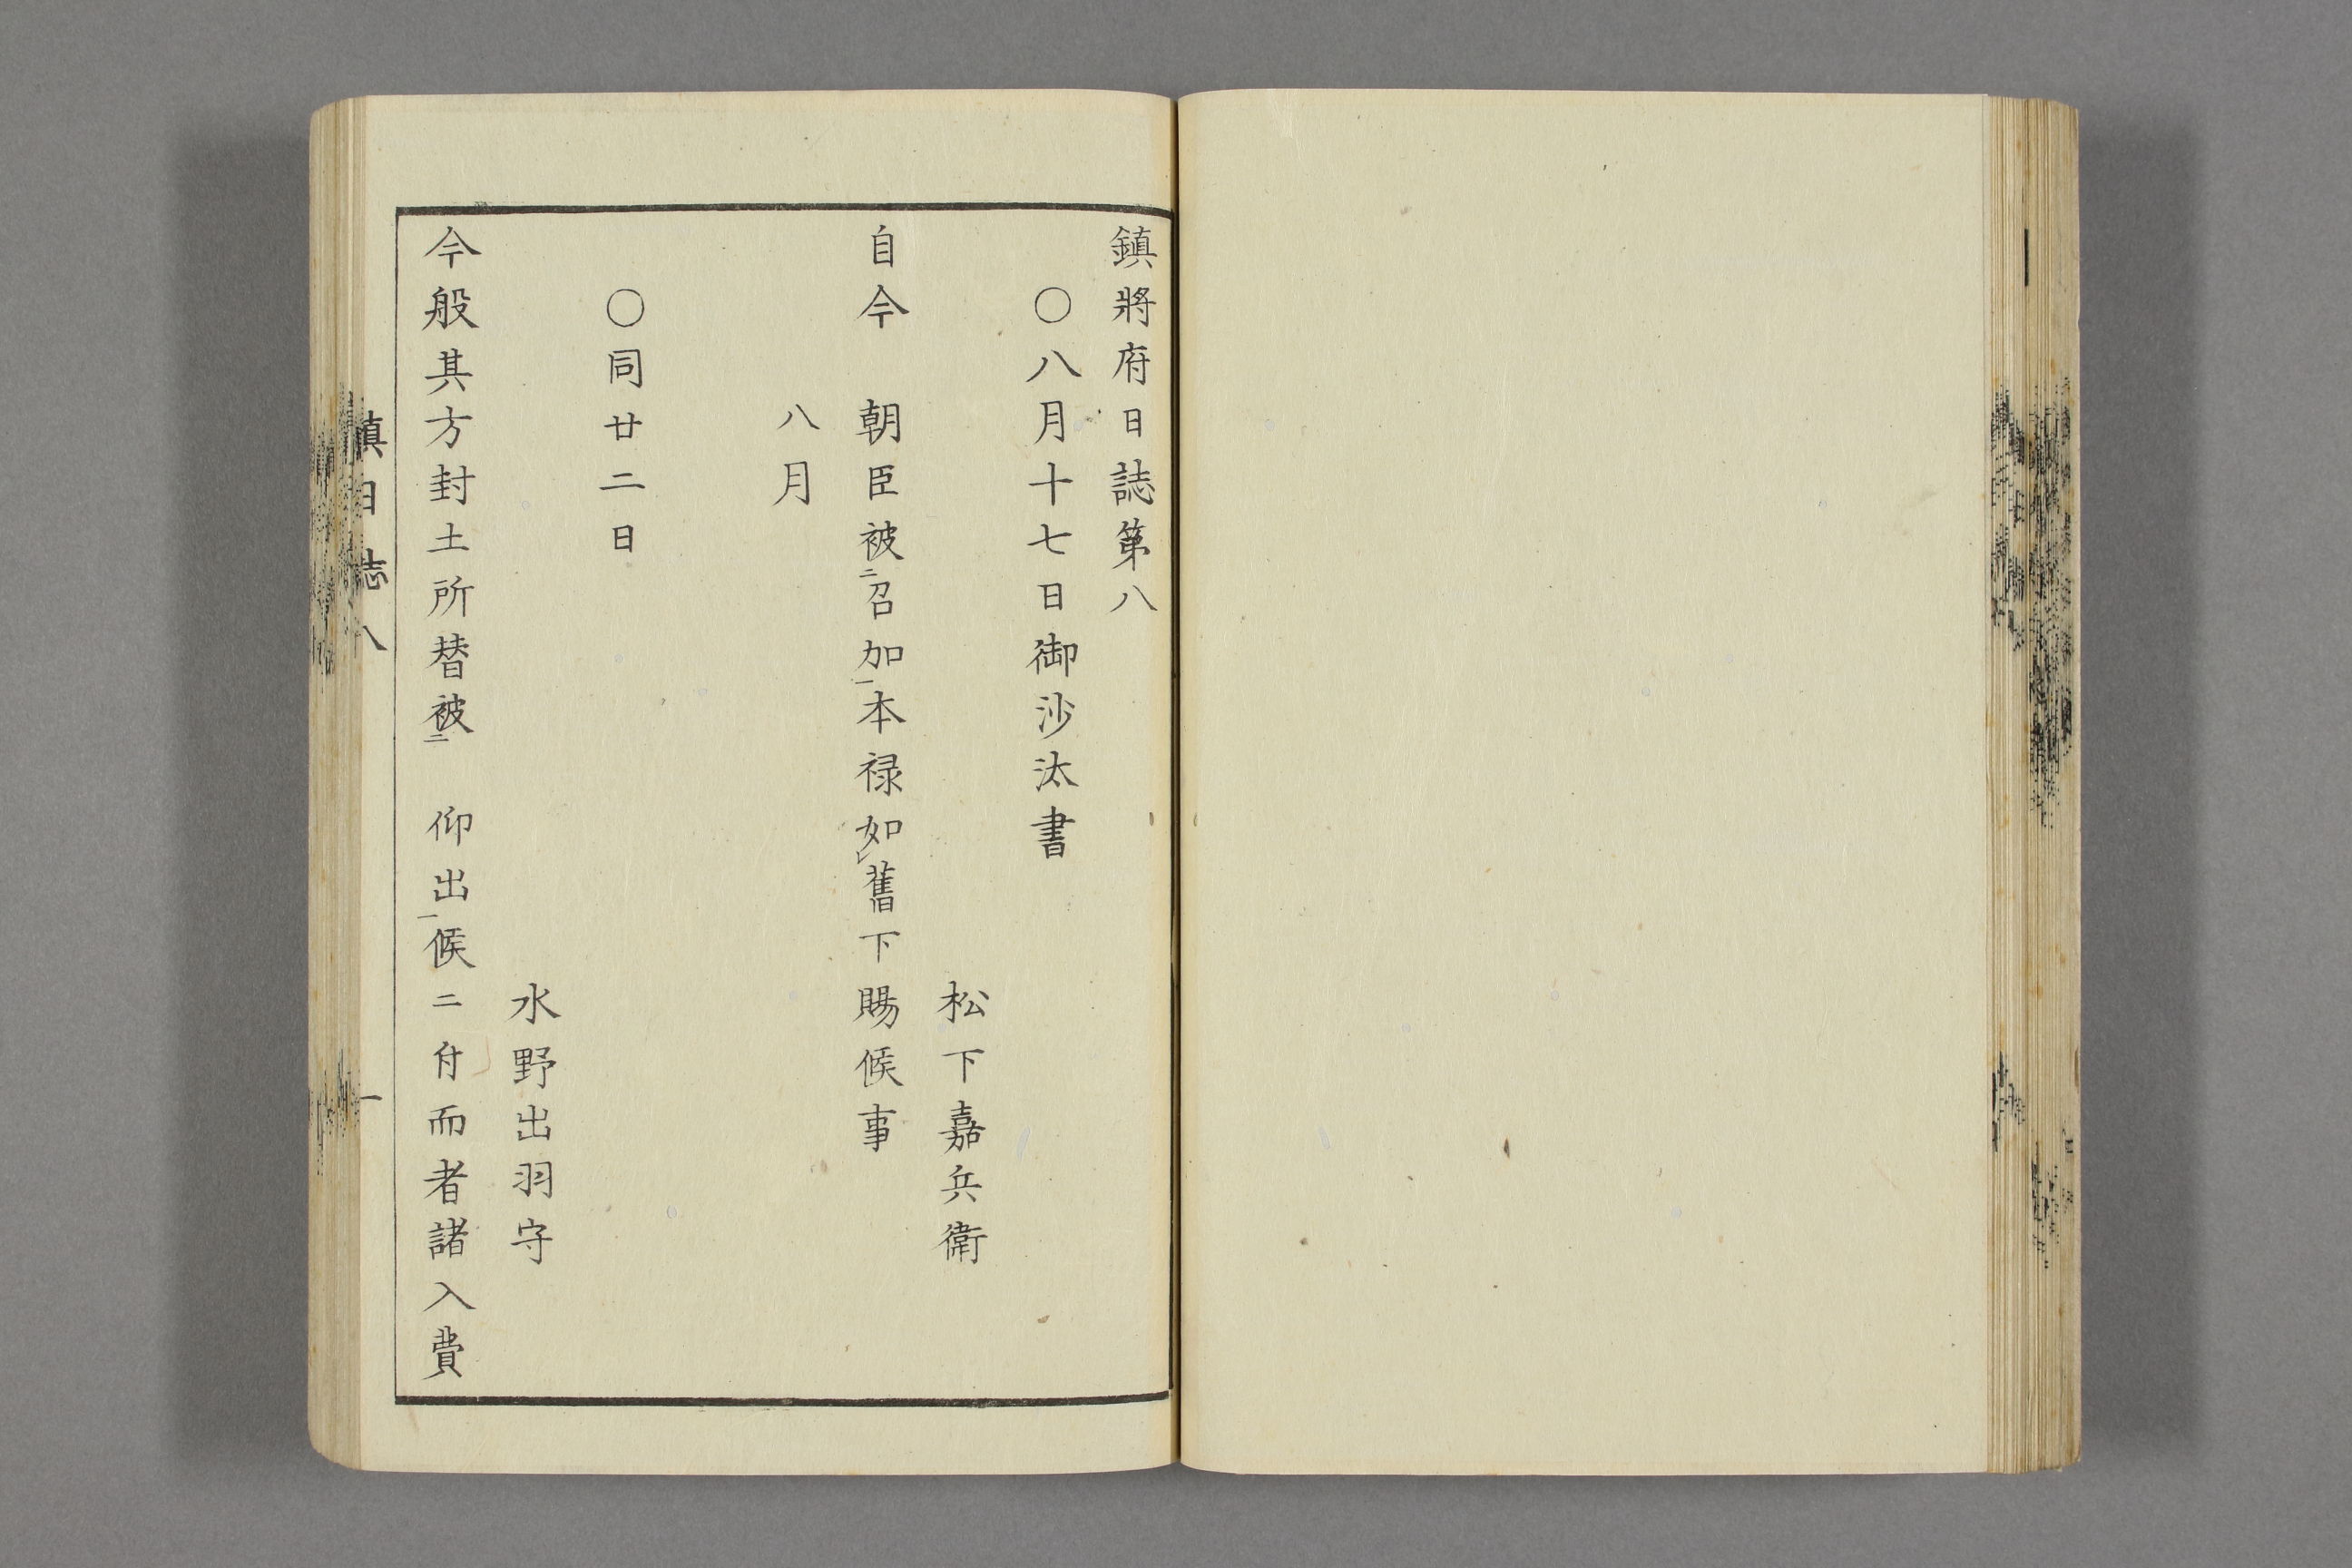 鎮將府日誌第八
〇八月十七日御沙汰書
松下嘉兵衛
自今　朝臣被㆓召加㆒本禄如㆑舊下賜候事
八月
〇同廿二日
水野出羽守
今般其方封土所替被㆓　仰出㆒候ニ付而者諸入費
鎮日誌八
一